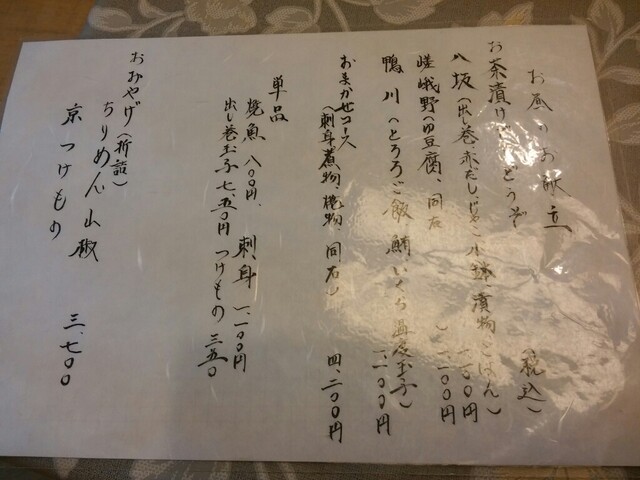 お昼のお献立
お茶漬け どうぞ (税込)
八坂(出し巻、赤だし、じゃこ、小鉢、漬物、ごはん) 一、一〇〇円
嵯峨野(ゆ豆腐、同右) 一、一〇〇円
鴨川(とろろご飯、鯛いくら温度玉子) 一、一〇〇円
おまかせコース
(刺身、煮物、焼物、同右) 四、二〇〇円
単品
焼魚 八〇〇円、 刺身 一、一〇〇円
出し巻玉子 七、五〇円 つけもの 三五〇
おみやげ(折詰)
ちりめん山椒
京つけもの 三、七〇〇